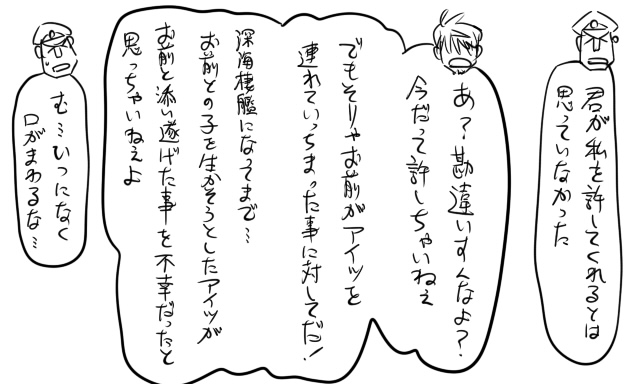 君が私を許してくれるとは
思っていなかった
あ?勘違いすんなよ?
今だって許しちゃいねぇ
でもそりゃお前がアイツを
連れていっちまった事に対してだ!
深海棲艦になってまで…
お前との子を生かそうとしたアイツが
お前と添い遂げた事を不幸だったと
思っちゃいねぇよ
む…いつになく
口がまわるな…